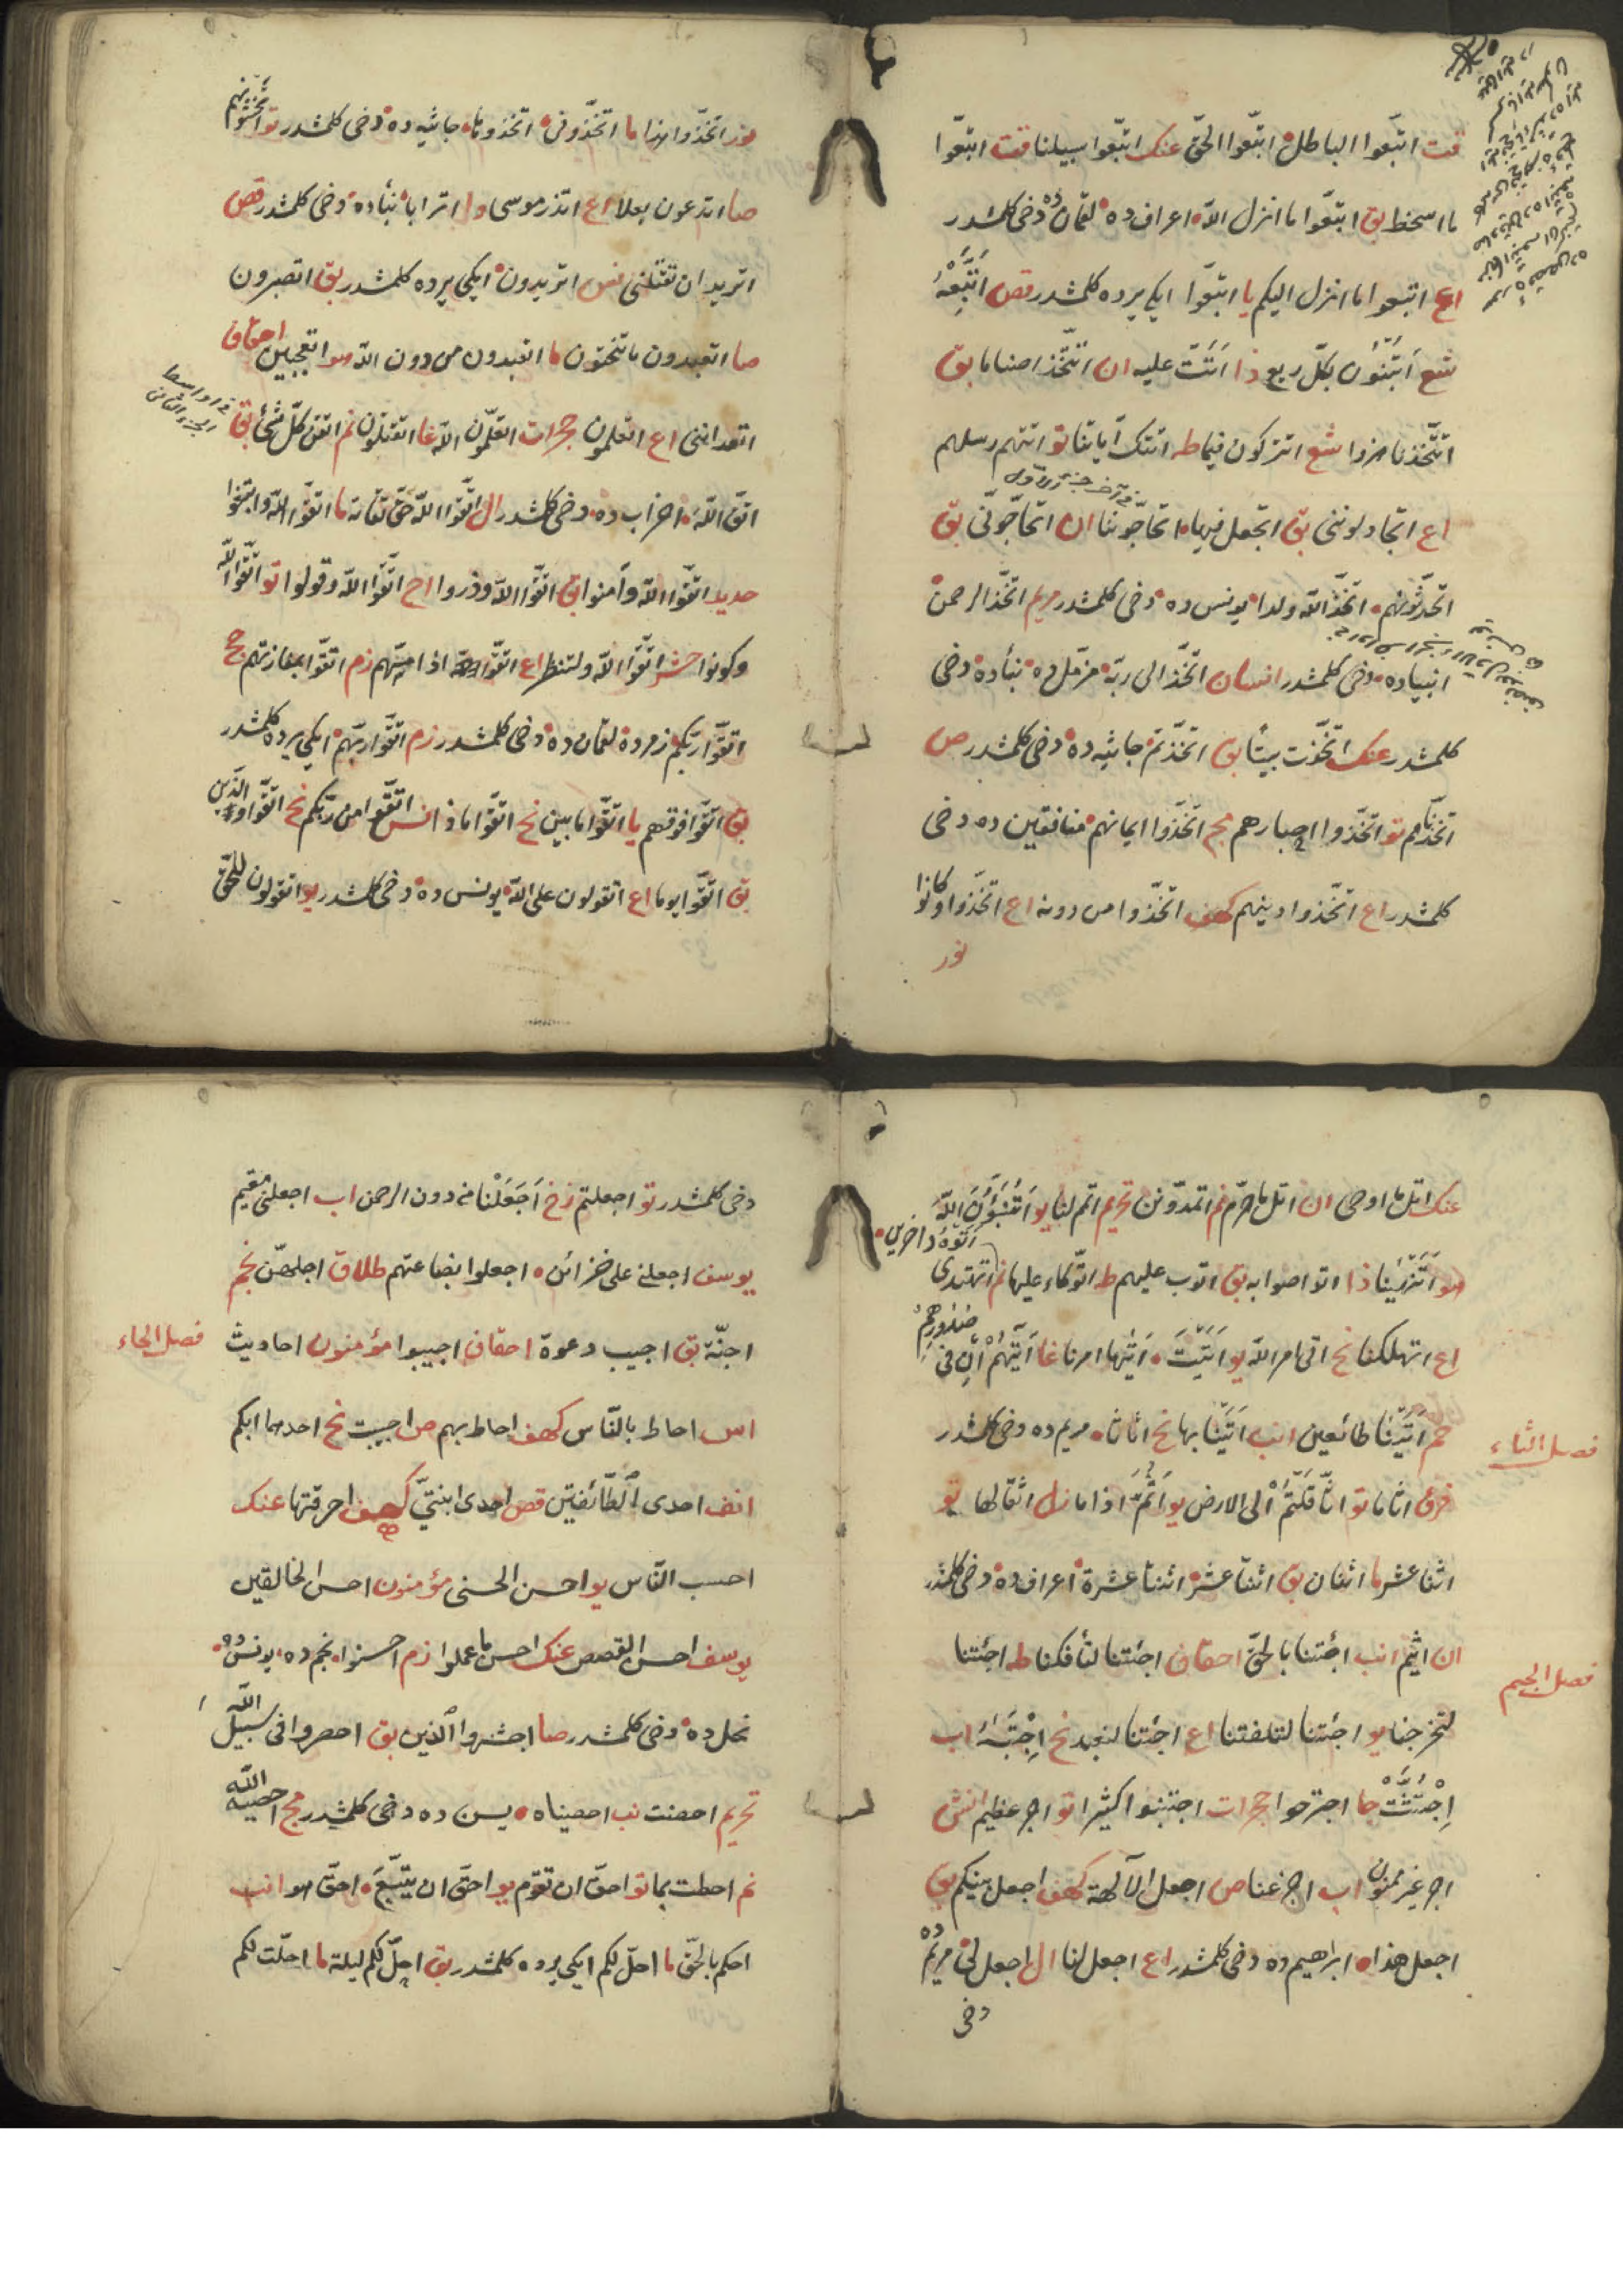 قت اتبّعوا الباطل اتبّعوا الحقّ عنك اتبّعوا سبيلنا قت اتبّعوا
ما اسخط بق ابتغوا ما انزل اللّه اعراف ده لقمان ده دخى كلمشدر
اع اتبعوا ما انزل اليكم يا اتبعوا ايكى يرده كلمشدر قص اَتَّبِعْهُ
شع اَتَبْنُونَ بكلّ ريع ذا اَتَتْ عليه ان اتتّخذ اصناما بق
اتتّخذنا هزوا شع اتتركون فيما طه اتتك آياتنا تو اتتهم رسلهم
اع اتجادلوننى بق اتجعل فيها اتحاجّوننا ان اتحاجّونّى بق
فى آخر جزء الاول
اتحدّثونهم اتخذ اللّه ولدا يونس ده دخى كلمشدر مريم اتخذ الرحمن
انبياده دخى كلمشدر انسان اتخذ الى ربّه مزمّل ده نبأده دخى
كلمشدر عنك اتخذت بيتا بق اتخذتم جاثيه ده دخى كلمشدر ص
اتخذناهم تو اتخذوا احبارهم مج اتخذوا ايمانهم منافقين ده دخى
كلمشدر اع اتخذوا دينهم كهف اتخذوا من دونه اع اتخذوا وكانوا
نور
نور اتخذوا هذا ما اتخذونى اتخذوناها جاثيه ده دخى كلمشدر تو اتخشونهم
صا اتدعون بعلا اع اتذر موسى ترابا نبأده دخى كلمشدر قص
اتريد ان تقتلنى نس اتريدون ايكى يرده كلمشدر بق اتصبرون
صا اتعبدون ما تنحتون ما اتعبدون من دون اللّه هو اتعجبين احقاف
اتعداننى اع اتعلمون حجرات اتعلّمون اللّه غا اتقتلون نم اتقن كلّ شئ بق
فى اواسط الجزء الثانى
اتق اللّه احزاب ده دخى كلمشدر ال اتقوا اللّه حقّ تقاته ما اتقوا اللّه وابتغوا
حديد اتقوا اللّه وآمنوا بق اتقوا اللّه وذروا اح اتقوا اللّه وقولوا تو اتقوا اللّه
وكونوا حشر اتقوا اللّه ولتنظر اع اتقوا اذا مسّهم زم اتقوا بمفازتهم حج
اتقوا ربّكم زمرده لقمان ده دخى كلمشدر زم اتقوا ربّهم ايكى يرده كلمشدر
بق اتقوا فوقهم يا اتقوا ما بين نح اتقوا ماذا من ربّكم نح اتقوا والذين
بق اتقوا يوما اع اتقولون على اللّه يونس ده دخى كلمشدر يو اتقولون للحقّ
عنك اتل ما اوحى ان اتل ما حرّم نم اتمدّونن تحريم اتمم لنا يو اَتُنَبِّؤُنَ اللّه
ذا اتواصوا به بق اتوب عليهم طه اتوكّاء عليها نم اتهتدى
اع اتهلكنا نح اتى امر اللّه يو اَتَيْتَ اَتَيها امرنا غا اَتيهُمْ اِن فى صدورهم
حم اَتَيْنا طائعين انب اَتَيْنا بها نح اثاثا مريم ده دخى كلمشدر
فصل الثاء
فرق اثاما تو اثّاقلتم الى الارض يو اَثُمَّ اذا ما زل اثقالها تو
اثنا عشر ما اثنان بق اثنتا عشرة اثنتا عشرة اعراف ده دخى كلمشدر
ان اثيم انب اجئتنا بالحقّ احقاف اجئتنا لتأفكنا طه اجئتنا
فصل الجيم
لتخرجنا يو اجئتنا لتلفتنا اع اجئتنا لنعبد نح اِجْتَبيهُ اب
اِجْتُثَّتْ جا اجترحوا حجرات اجتنبوا كثيرا تو اجر عظيم انش
اجر غير ممنون اب اجزعنا ص اجعل الآلهة كهف اجعل بينكم بق
اجعل هذا ابراهيم ده دخى كلمشدر اع اجعل لنا ال اجعل لى مريم ده
دخى
دخى كلمشدر تو اجعلتم زخ اَجَعَلْنا من دون الرحمن اب اجعلنى مقيم
يوسف اجعلنى على خزائن اجعلوا بضاعتهم طلاق اجلهنّ نجم
اجنّة بق اجيب دعوة احقاف اجيبوا مؤمنون احاديث
فصل الحاء
اس احاط بالنّاس كهف احاط بهم ص احببت نح احدهما ابكم
انف احدى الطّائفتين قص احدى ابنتىّ كهف اخرقتها عنك
احسب النّاس يو احسن الحسنى مؤمنون احسن الخالقين
يوسف احسن القصص عنك احسن ما عملوا زم احسنوا نجم ده يونس ده
نحل ده دخى كلمشدر صا احشروا الذين بق احصروا فى سبيل اللّه
تحريم احصنت نب احصيناه يسن ده دخى كلمشدر مج احصيه اللّه
نم احطت بما تو احقّ ان تقوم يو احقّ ان يتّبع احقّ هو انب
احكم بالحقّ ما احلّ لكم ايكى يرده كلمشدر بق احلّ لكم ليلة ما احلّت لكم